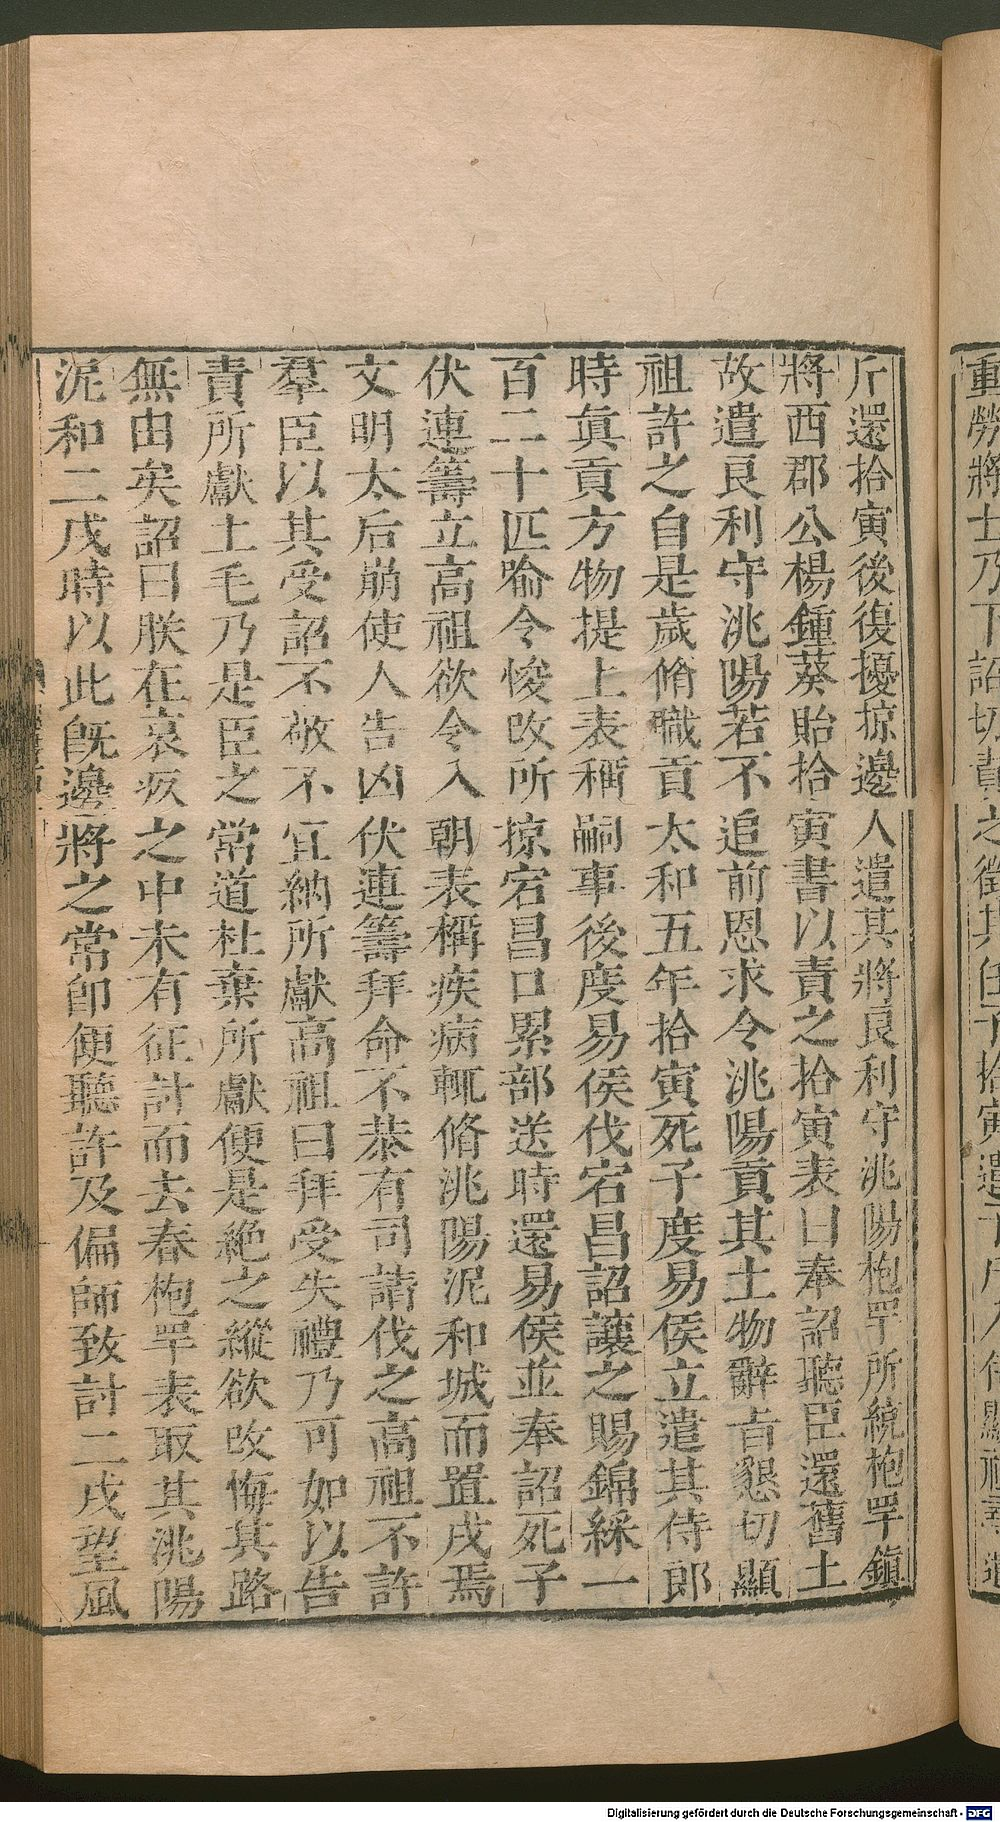 重勞將士乃下詔切責之徵其任子拾寅遣子
斤還拾寅後復擾掠邊人遣其將良利守洮陽枹罕所統枹罕鎭
將西郡公楊鍾葵貽拾寅書以責之拾寅表曰奉詔聽臣還舊土
故遣良利守洮陽若不追前恩求令洮陽貢其土物辭旨懇切顯
祖許之自是歲脩職貢太和五年拾寅死子度易侯立遣其侍郎
時眞貢方物提上表稱嗣事後度易侯伐宕昌詔讓之賜錦綵一
百二十匹喻令悛改所掠宕昌口累部送時還易侯並奉詔死子
伏連籌立高祖欲令入朝表稱疾病輒脩洮陽泥和城而置戍焉
文明太后崩使人告凶伏連籌拜命不恭有司請伐之高祖不許
羣臣以其受詔不敬不宜納所獻高祖曰拜受失禮乃可如以告
責所獻土毛乃是臣之常道杜棄所獻便是絶之縱欲改悔其路
無由矣詔曰朕在哀疚之中未有征討而去春枹罕表取其洮陽
泥和二戍時以此旣邊將之常卽便聽許及偏師致討二戍望風
Digitalisierung gefördert durch die Deutsche Forschungsgemeinschaft - DFG